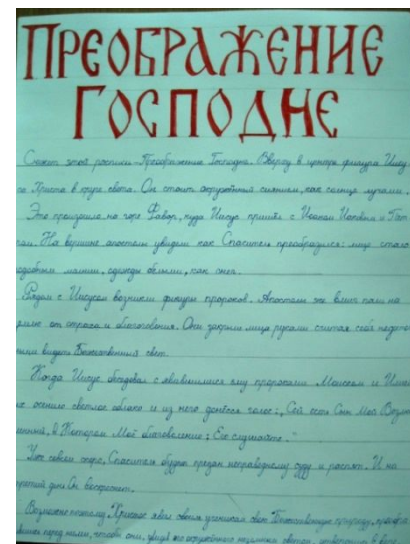 ПРЕОБРАЖЕНИЕ
ГОСПОДНЕ
Сюжет этой росписи – Преображение Господне. Вверху в центре фигура Иису-
са Христа в круге света. Он стоит окружённый сиянием, как солнце лучами.
Это произошло на горе Фавор, куда Иисус пришёл с
На вершине апостолы увидели как Спаситель преобразился: лице стало
подобным молнии, одежды белыми, как снег.
Рядом с Иисусом возникли фигуры пророков. Апостолы же
от страха и благоговения. Они закрыли лица руками считая себя недостой-
ными видеть Божественный свет.
Когда Иисус беседовал с явившимися ему пророками Моисеем и
их осенило светлое облако и из него донёсся голос: „Сей есть Сын Мой Возлюб-
ленный, в Котором Моё благоволение; Его слушайте."
Уже совсем скоро, Спаситель будет предан неправедному суду и распят. И на
третий день Он воскреснет.
Возможно поэтому Христос явил своим ученикам свою Божественную природу,
перед ними, чтобы они,